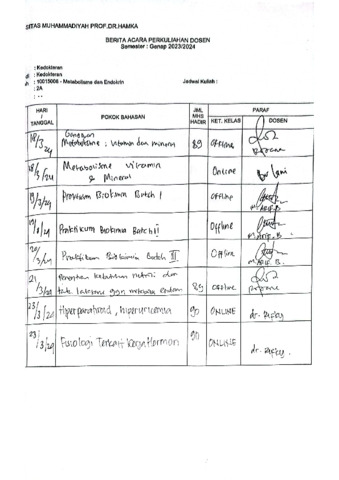 SITAS MUHAMMADIYAH PROF.DR.HAMKA
BERITA ACARA PERKULIAHAN DOSEN
Semester : Genap 2023/2024
: Kedokteran
: Kedokteran
: 10015008 - Metabolisme dan Endokrin
Jadwal Kuliah :
: 2A
HARI / TANGGAL POKOK BAHASAN JML MHS HADIR KET. KELAS PARAF DOSEN
18/3 24 Metabolisme : Vitamin dan mineral 89 Offline
18/3/24 Metabolisme Vitamin & Mineral Online
19/3/24 Praktikum Biokimia Batch I Offline M. ARIF. B.
19/3/24 Praktikum Biokimia Batch II Offline M. ARIF. B.
20/3/24 Praktikum Biokimia Batch III Offline M. ARIF. B.
21/3/24 Penentuan kebutuhan nutrisi dan
89 Offline
23/3/24 Hiperparatiroid, hiperuricemia 90 ONLINE
23/3/24 Fisiologi Terkait Kerja Hormon 90 ONLINE